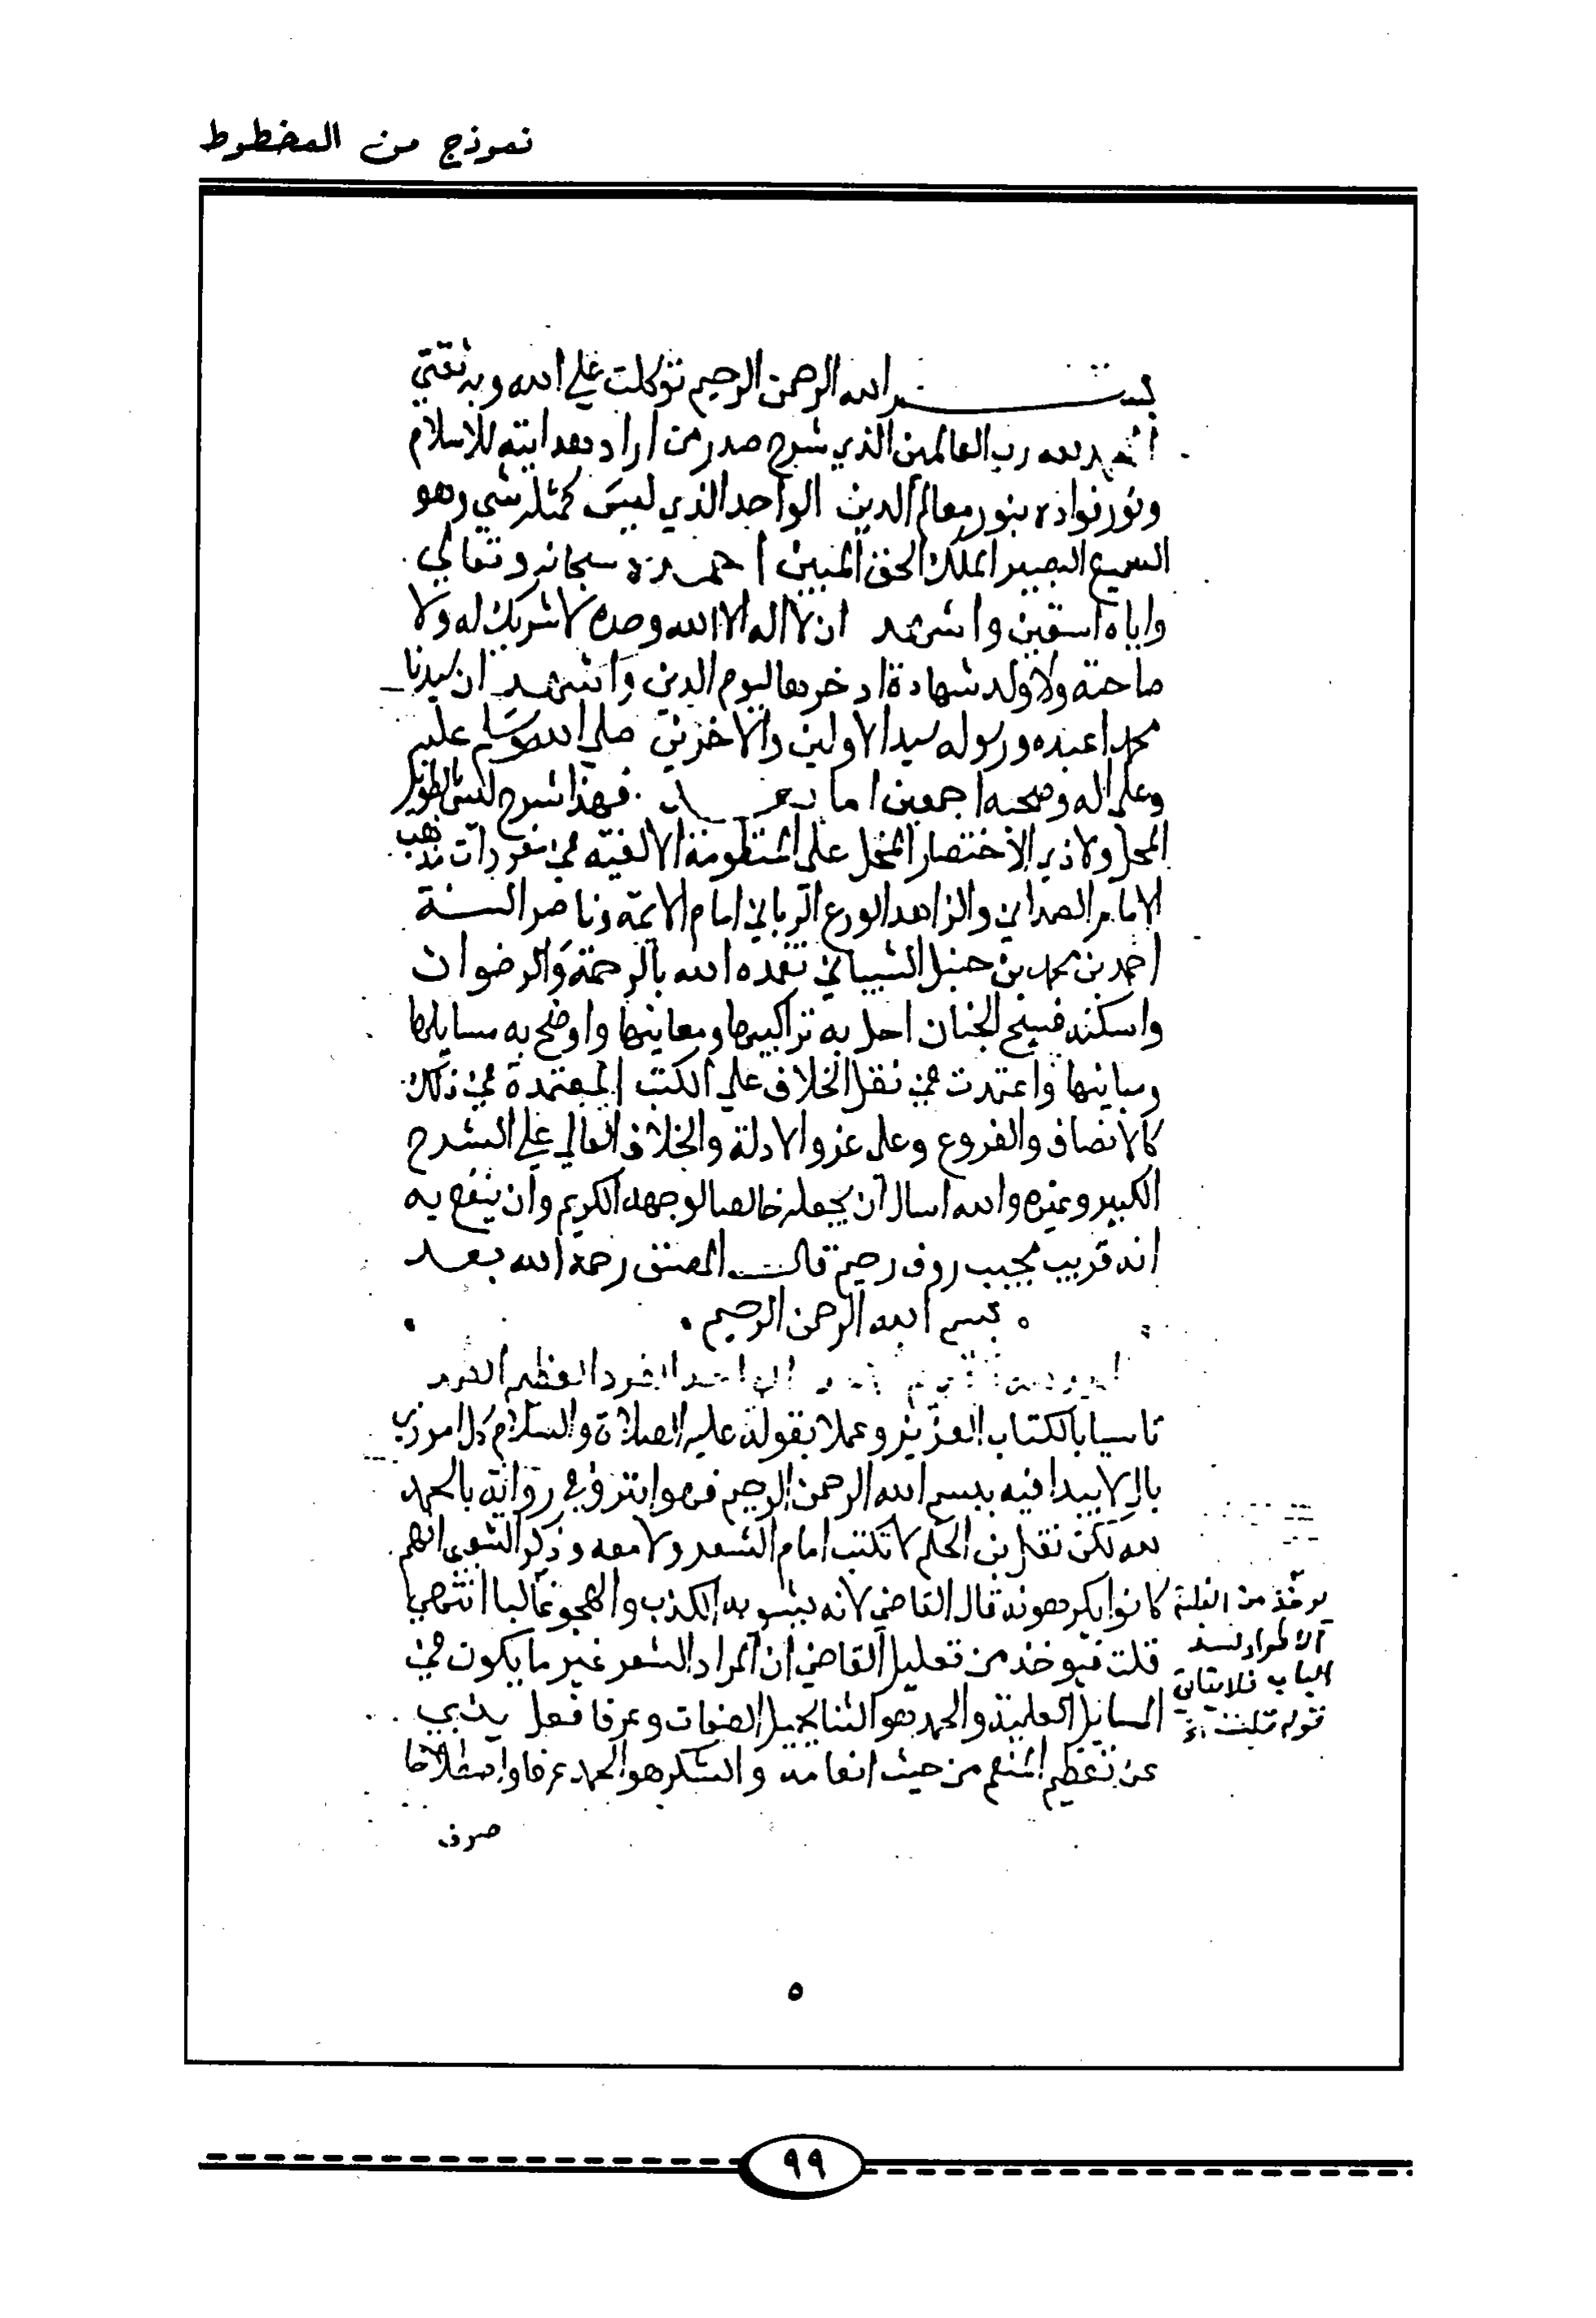 نموذج من المخطوط
بسم الله الرحمن الرحيم توكلت علي الله وبه ثقتي
الحمد لله رب العالمين الذي شرح صدر من اراد هدايته للاسلام
ونور فواده بنور معالم الدين الواحد الذي ليس كمثله شي وهو
السميع البصير الملك الحق المبين احمده سبحانه وتعالي
واياه استعين واشهد ان لا اله الا الله وحده لا شريك له ولا
صاحبة ولا ولد شهادة ادخرها ليوم الدين واشهد ان سيدنا
محمدا عبده ورسوله سيد الاولين والاخرين صلي الله وسلم عليه
وعلي اله وصحبه اجمعين اما بعد فهذا شرح ليس بالطويل
الممل ولا ذي الاختصار المخل علي المنظومة الالفيه في مفردات مذهب
الامام الصمداني والزاهد الورع الرباني امام الايمة وناصر السنة
احمد بن محمد بن حنبل الشيباني تغمده الله بالرحمة والرضوان
واسكنه فسيح الجنان احل به تراكيبها ومعانيها واوضح به مسايلها
ومبانيها واعتمدت في نقل الخلاف علي الكتب المعتمدة في ذلك
كالانصاف والفروع وعلي عزو الادلة والخلاف العالي علي الشرح
الكبير وغيره والله اسال ان يجعله خالصا لوجهه الكريم وان ينفع به
انه قريب مجيب روف رحيم قال المصنف رحمة الله بعد
بسم الله الرحمن الرحيم
الواحد الفرد العظيم
تاسيا بالكتاب العزيز وعملا بقوله عليه الصلاة والسلام كل امر ذي
بال لا يبدا فيه ببسم الله الرحمن الرحيم فهو ابتر وفي رواية بالحمد
لله لكن نقل بن الحكم لا تكتب امام الشعر ولا معه وذكر الشعبي انهم
كانوا يكرهونه قال القاضي لانه يشوبه الكذب والهجو غالبا انتهي
قلت فيوخذ من تعليل القاضي ان المراد الشعر غير ما يكون في
المسايل العلمية والحمد هو الثنا بجميل الصفات وعرفا فعل ينبي
عن تعظيم المنعم من حيث انعامه والشكر هو الحمد عرفا واصطلاحا
صرف
يوخذ من
الباب فلا ينافي
قوله قلت
٥
٩٩